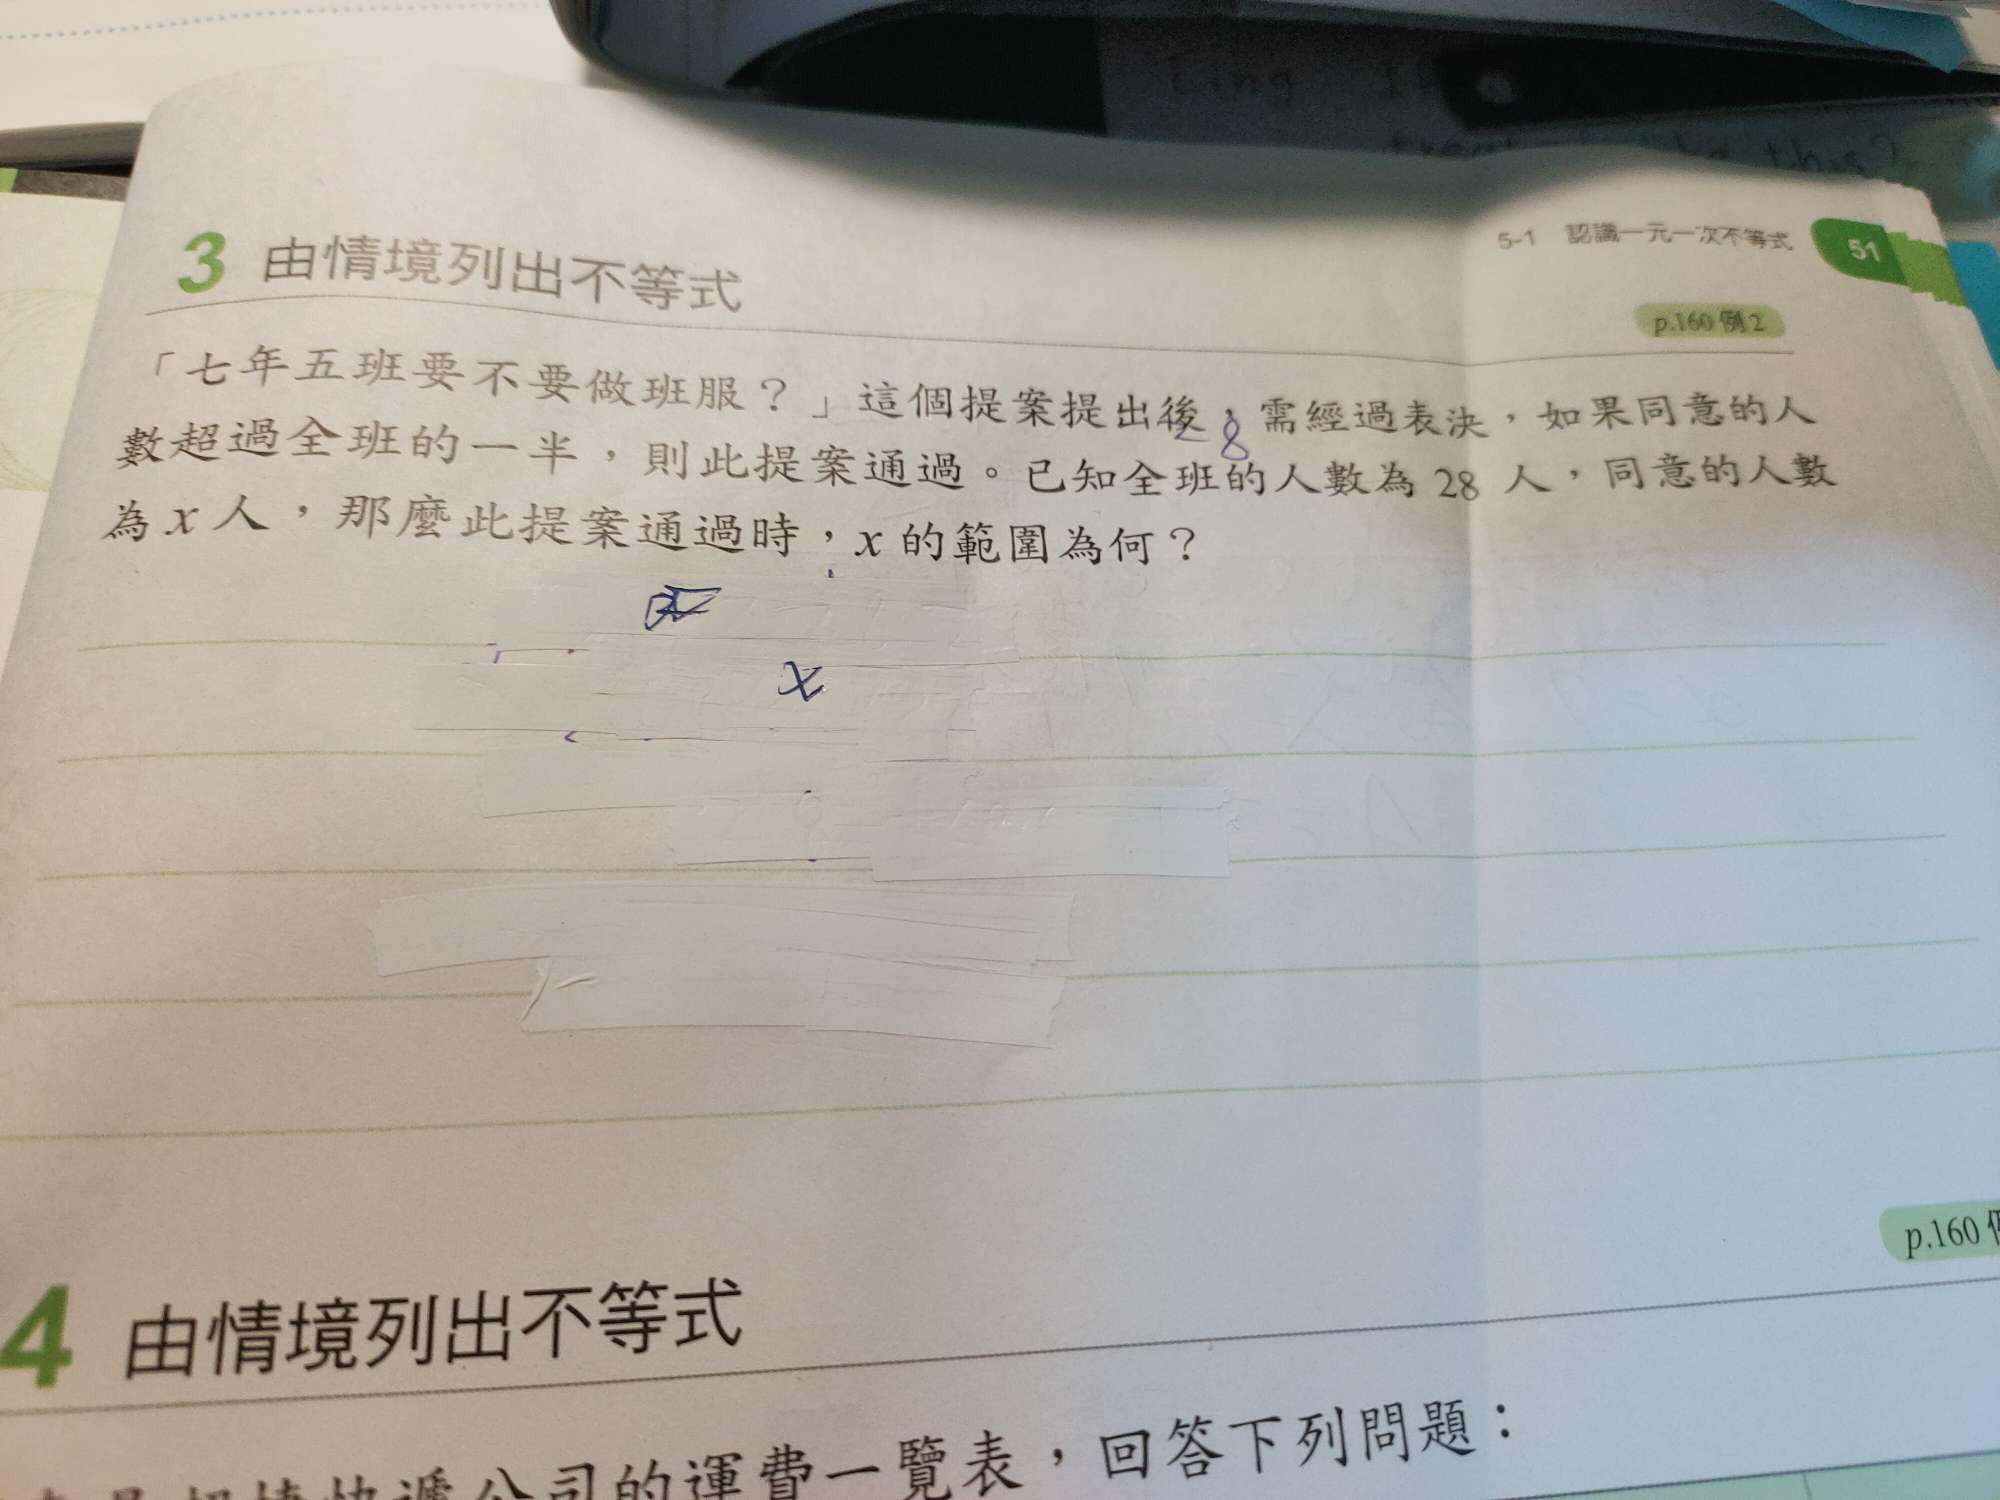 Ling
this?
5-1 認識一元一次不等式 51
3 由情境列出不等式
p.160 例2
「七年五班要不要做班服？」這個提案提出後，需經過表決，如果同意的人
8
數超過全班的一半，則此提案通過。已知全班的人數為 28 人，同意的人數
為 x 人，那麼此提案通過時，x 的範圍為何？
x
p.160
4 由情境列出不等式
快遞公司的運費一覽表，回答下列問題：